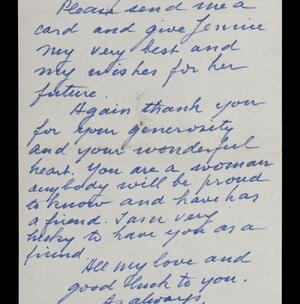 Please send me a
card and give Jennie
my very best and
my wishes for her
future.
Again thank you
for your generosity
and your wonderful
heart. You are a woman
anybody will be proud
to know and have has
a friend. I am very
lucky to have you as a
friend.
All my love and
good luck to you.
As always